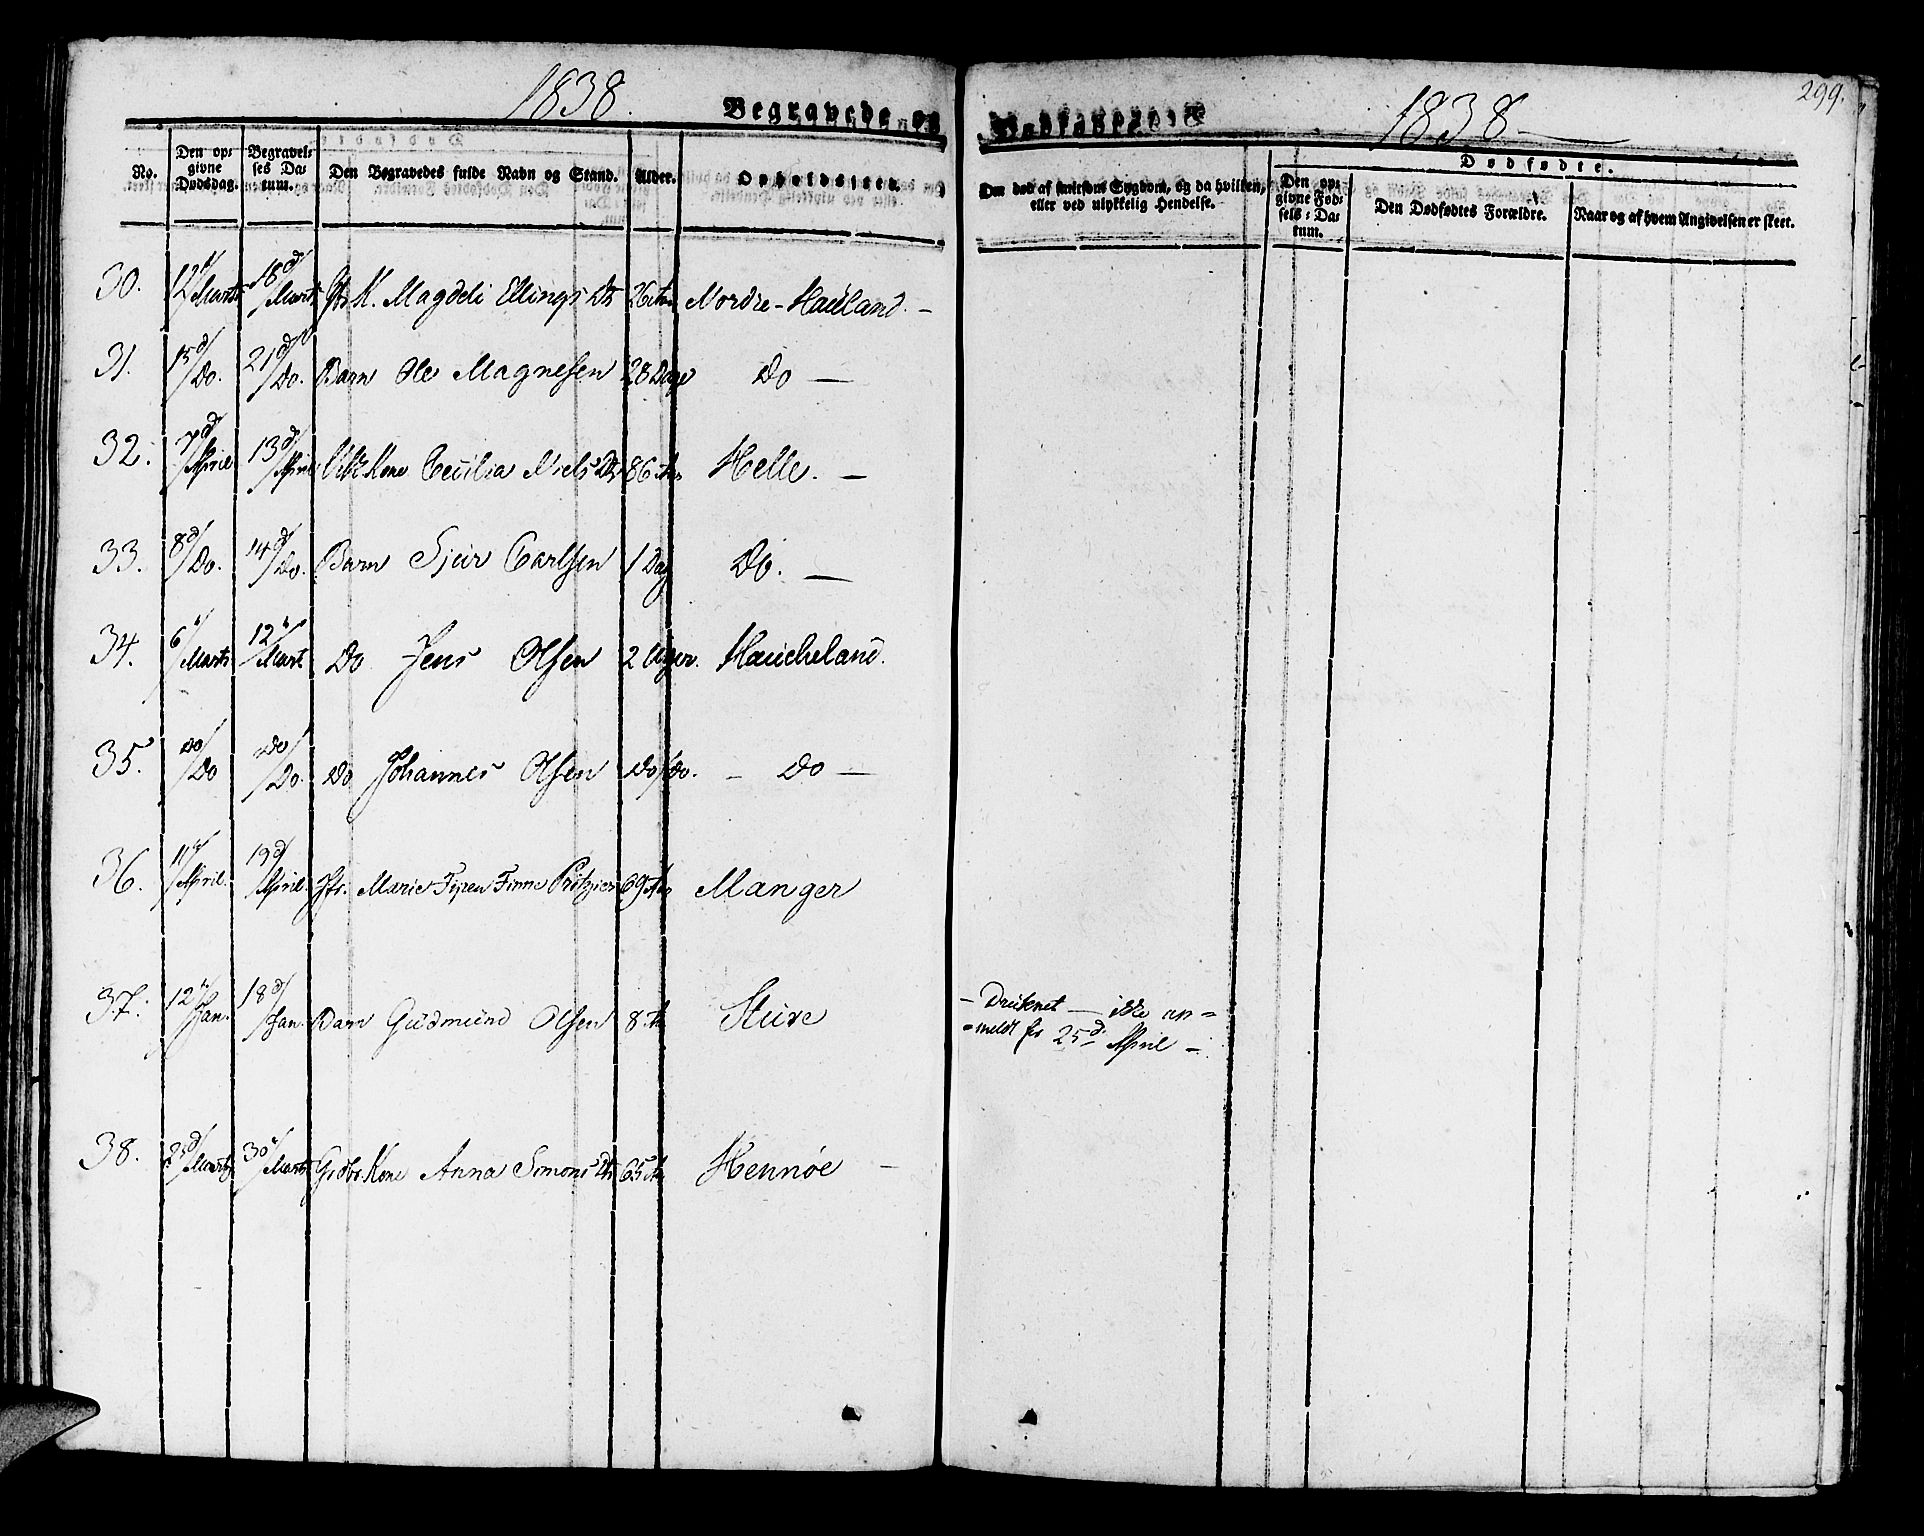 1838.
Begravede og Dødfødte
1838
299.
No.
Den op= givne Dødsdag.
Begravel= ses Da= tum.
Den Begravedes fulde Navn og Stand.
Alder.
Opholdssted.
Om død af smitsom Sygdom, og da hvilken, eller ved ulykkelig Hendelse.
Dødfødte.
Den op= givne Fød= sels=Da= tum.
Den Dødfødtes Forældre.
Naar og af hvem Angivelsen er skeet.
30. 12/Marts 18d/Marts K. Magdeli Ellings Dtr 26 Aar Nordre-Haúland. —
31. 15d/Do. 21d/Do. Barn Ole Magnesen 28 Dage Do —
32. 7d/April 13d/April Kone Cecilia Niels Dtr 86 Aar Helle. —
33. 8d/Do. 14d/Do. Barn Sjúr Carlsen 1 Dag Do. —
34. 6/Marts 12/Marts Do Jens Olsen 2 Uger. Haúcheland.
35. Do/Do Do/Do. Do Johannes Olsen Do/Do. — Do —
36. 11/April. 19d/April Jfr. Marie Finne Pritzier 69 Aar Manger
37. 12/Jan. 18d/Jan. Barn Gúdmúnd Olsen 8 Aar Stúre
— Drúknet — ikke an=
=meldt før 25d April —
38. 23d/Marts 30/Marts Gdbr. Kone Anna Simons Dtr 65 Aar Hennøe —